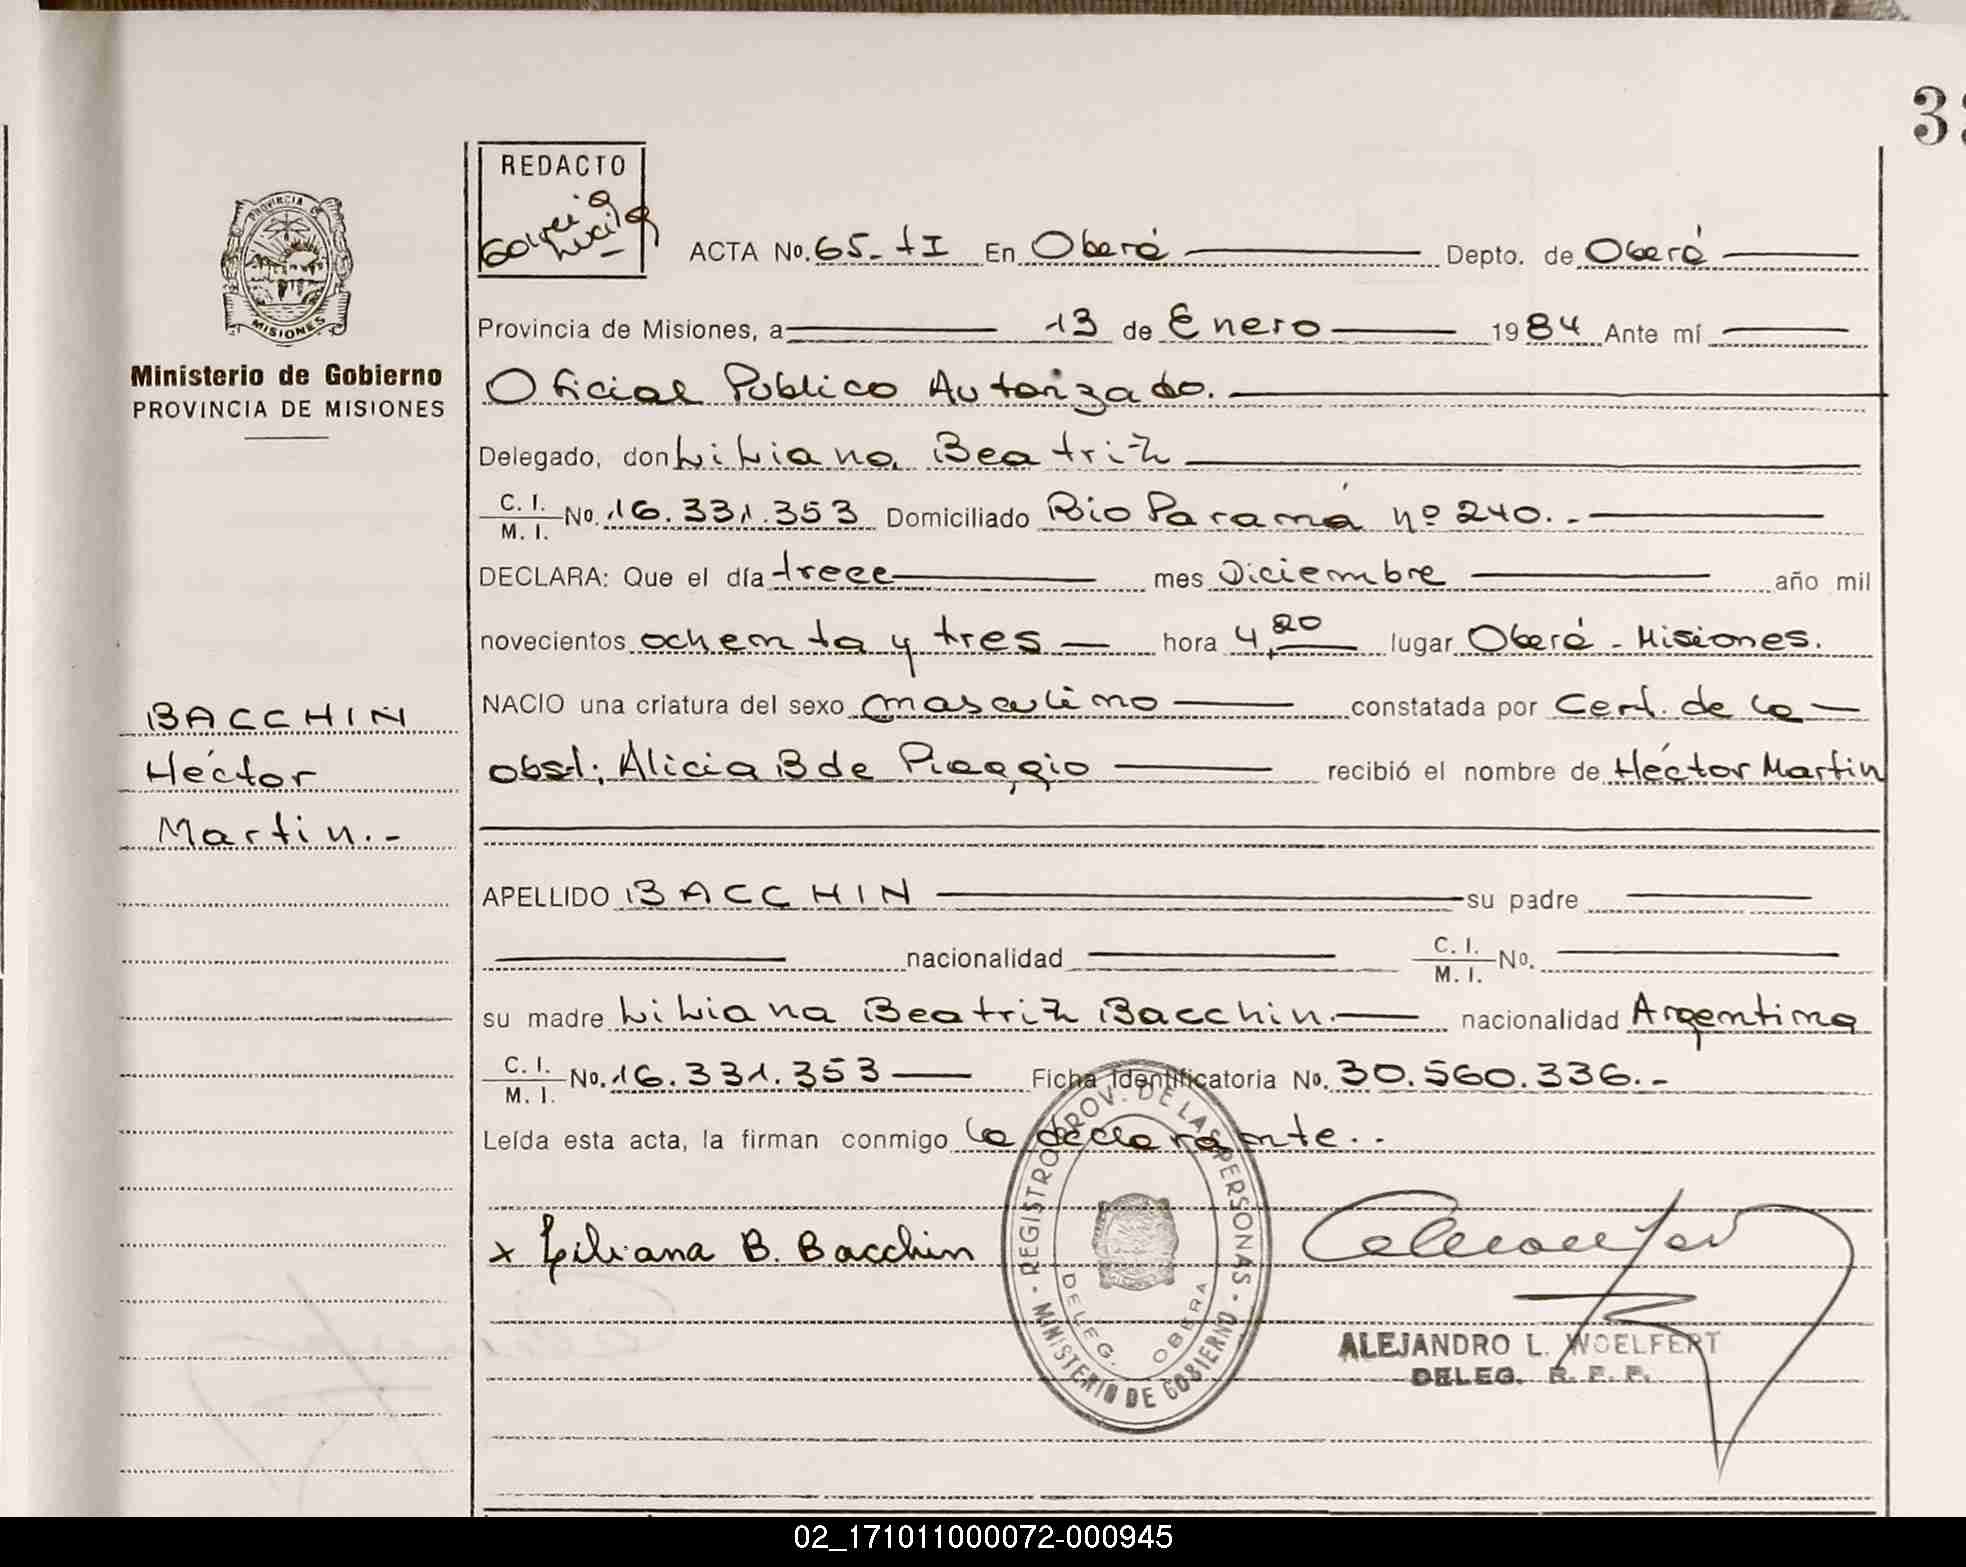 33
REDACTO
García
Lucila
ACTA No. 65-tI En Oberá Depto. de Oberá
PROVINCIA DE
MISIONES
Provincia de Misiones, a 13 de Enero 1984 Ante mí
Ministerio de Gobierno
PROVINCIA DE MISIONES
Oficial Publico Autorizado.
Delegado, don Liliana Beatriz
C. I.
M. I. No. 16.331.353 Domiciliado Rio Paraná nº 240.-
DECLARA: Que el día trece mes Diciembre año mil
novecientos ochenta y tres hora 4,20 lugar Oberá - Misiones.
NACIO una criatura del sexo masculino constatada por Cert. de la
obst; Alicia B de Piaggio recibió el nombre de Héctor Martin
BACCHIN
Héctor
Martin.-
APELLIDO BACCHIN su padre
nacionalidad C. I.
M. I. No.
su madre Liliana Beatriz Bacchin. nacionalidad Argentina
C. I.
M. I. No. 16.331.353 Ficha Identificatoria No. 30.560.336.-
Leída esta acta, la firman conmigo la declarante..
x Liliana B. Bacchin
REGISTRO PROV. DE LAS PERSONAS
DELEG. OBERA
MINISTERIO DE GOBIERNO
ALEJANDRO L. WOELFERT
DELEG. R. P. P.
02_171011000072-000945